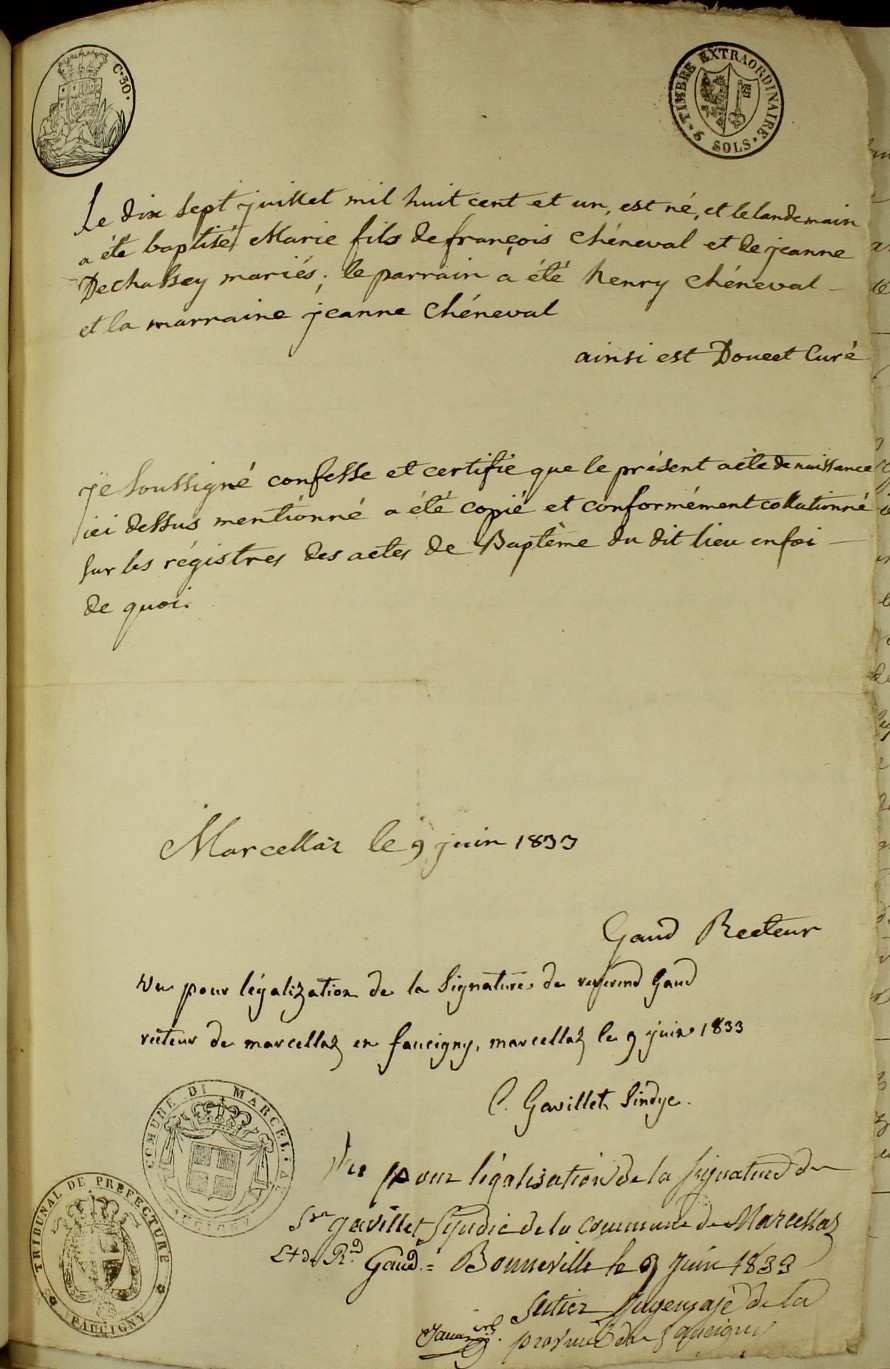 C. 30.
TIMBRE EXTRAORDINAIRE
9 SOLS
Le dix sept juillet mil huit cent et un, est né, et le landemain
a été baptisé Marie fils de françois Chéneval et de jeanne
Dechassey mariés; le parrain a été henry Chéneval
et la marraine jeanne Chéneval
ainsi est Doucet Curé
je Soussigné confesse et certifie que le présent acte de naissance
ici dessus mentionné a été copié et conformément collationné
sur les régistres des actes de Baptême du dit lieu en foi
de quoi.
Marcellaz le 9 juin 1833
Gaud Recteur
Vu pour légalization de la Signature de reverend Gaud
recteur de marcellaz en faucigny, marcellaz le 9 juin 1833
C. Gavillet Sindyc.
COMUNE DI MARCELLAZ
Vu pour légalisation de la signature du
Sr gavillet Syndic de la commune de Marcellaz
Et du Rd Gaud = Bonneville le 9 juin 1833
TRIBUNAL DE PREFECTURE
FAUCIGNY
juge maje de la
province du faucigny